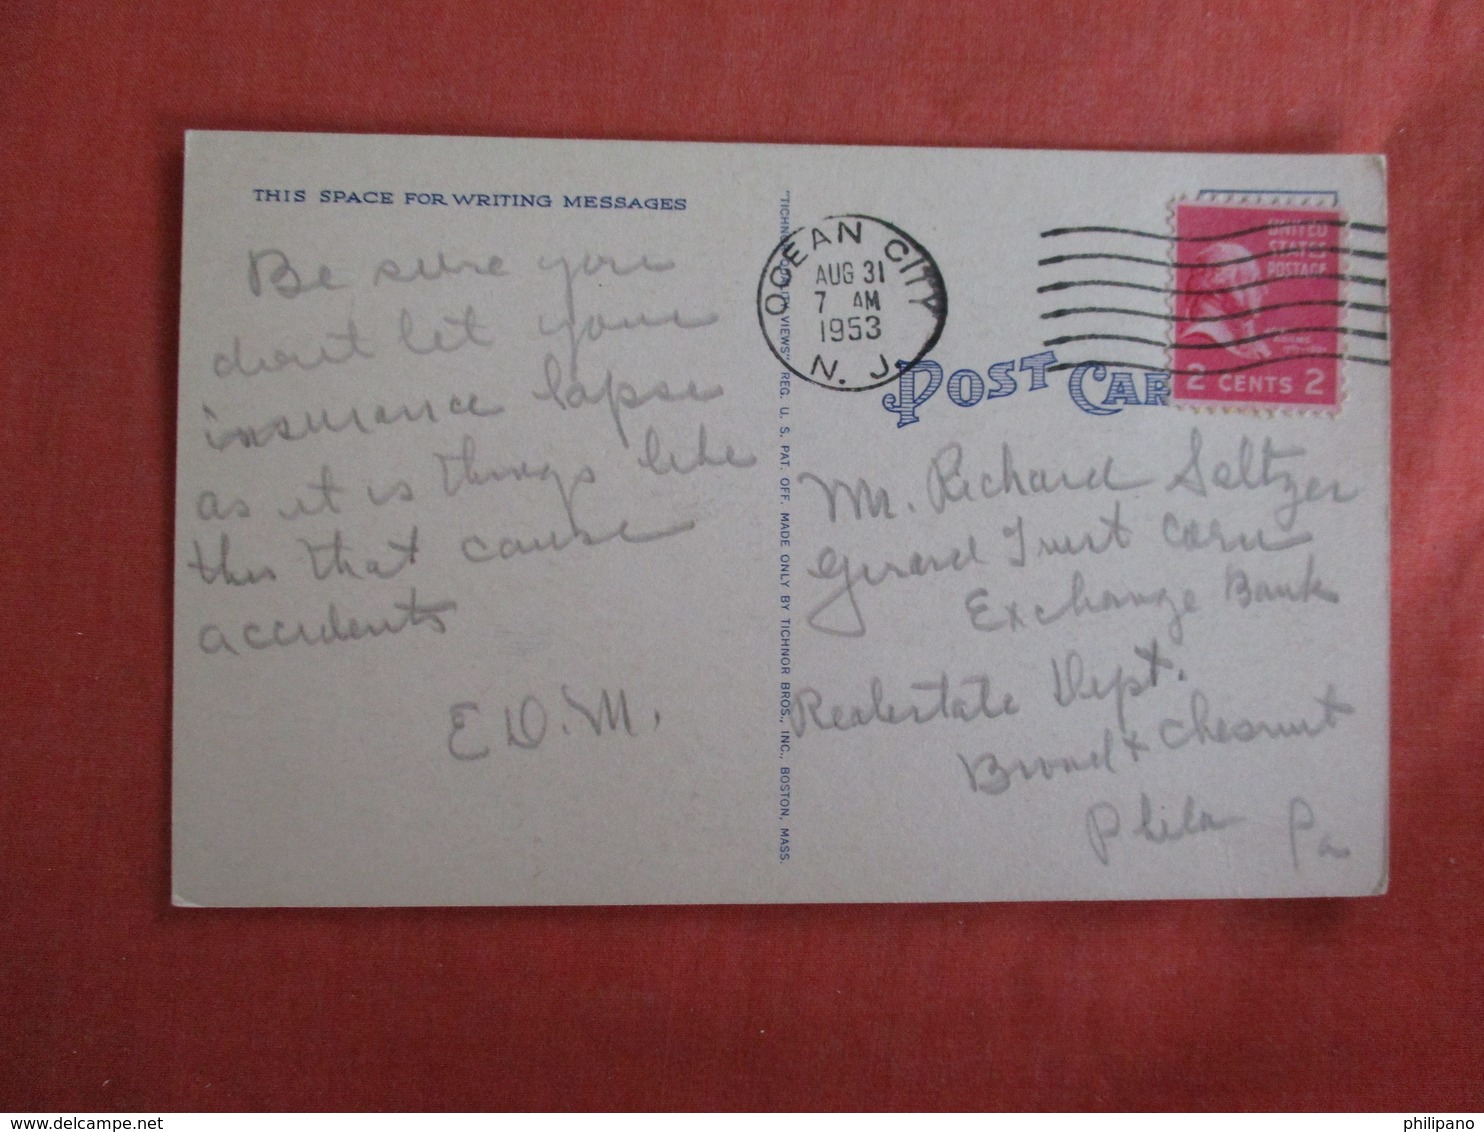 THIS SPACE FOR WRITING MESSAGES
Be sure you
dont let your
insurance lapse
as it is things like
this that cause
accidents
E.D.M.
"TICHNOR QUALITY VIEWS" REG. U. S. PAT. OFF. MADE ONLY BY TICHNOR BROS., INC., BOSTON, MASS.
OCEAN CITY
AUG 31
7 AM
1953
N. J.
UNITED
STATES
POSTAGE
2 CENTS 2
POST CAR
Mr. Richard Seltzer
Girard Trust Corn
Exchange Bank
Realestate Dept.
Broad & Chesnut
Phila Pa
philipano
delcampe.net